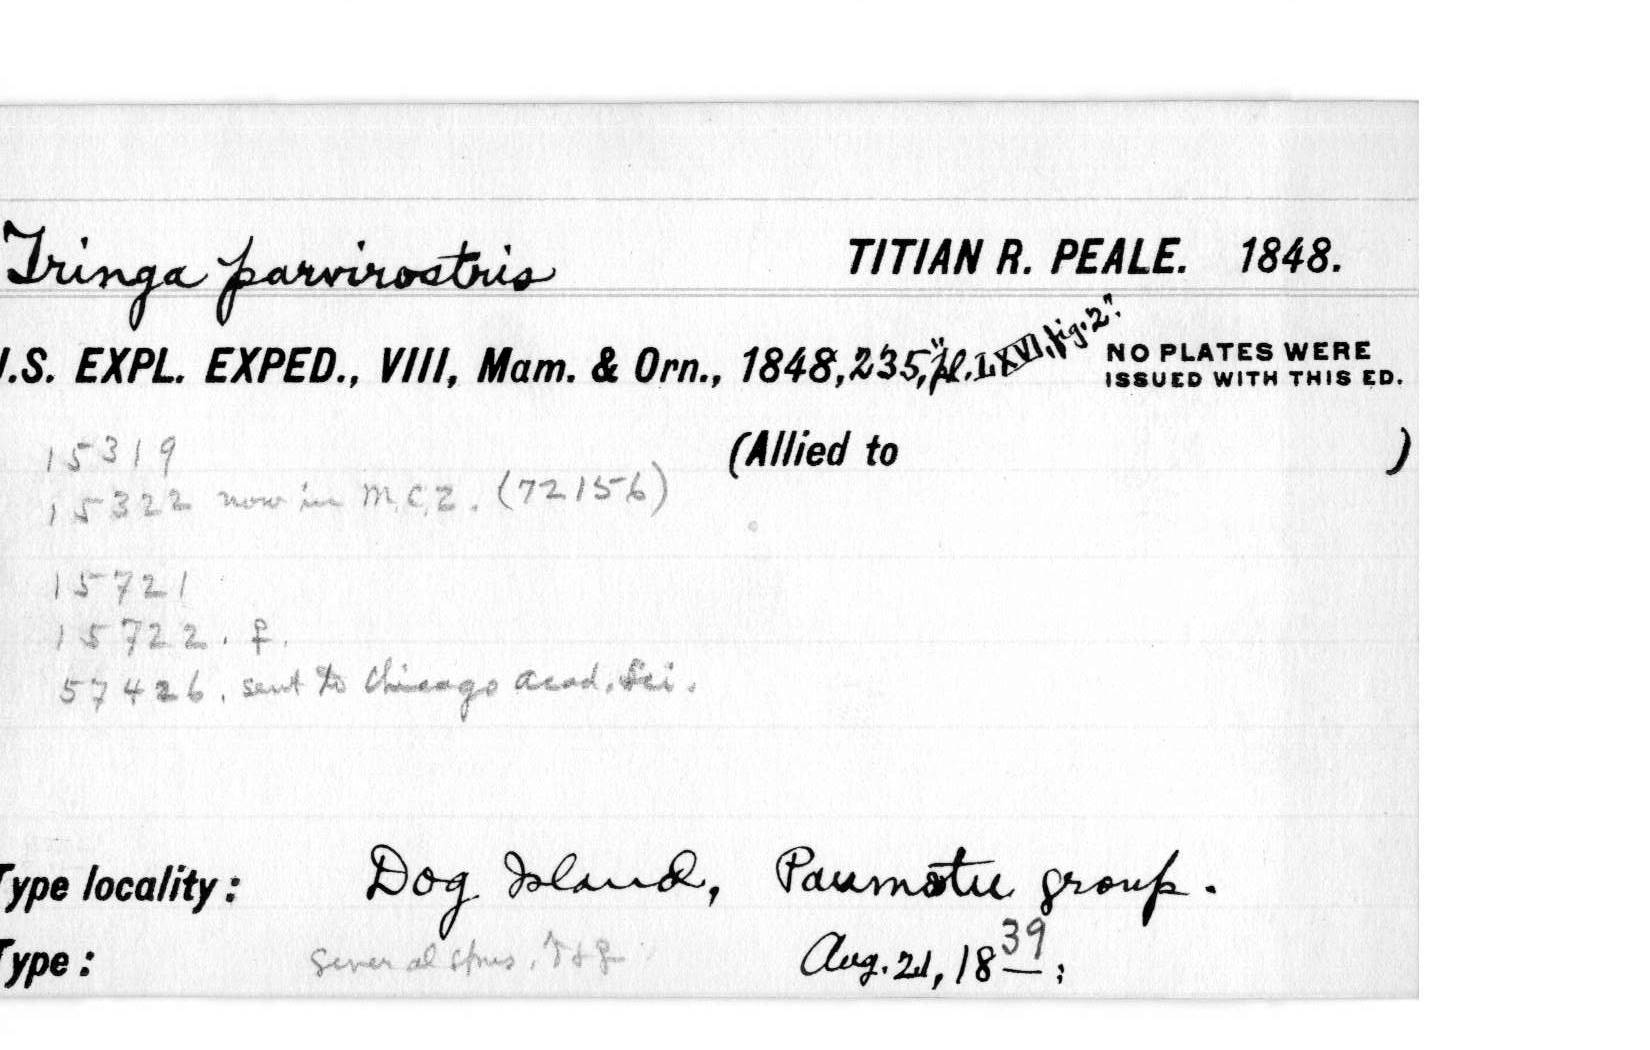 Tringa parvirostris TITIAN R. PEALE. 1848.
.S. EXPL. EXPED., VIII, Mam. & Orn., 1848, 235, "pl. LXVI, fig. 2". NO PLATES WERE
ISSUED WITH THIS ED.
15319 (Allied to )
15322 now in M.C.Z. (72156)
15721
15722. ♀.
57426. sent to Chicago Acad. Sci.
Type locality: Dog Island, Paumotu group.
Type: several spms. ♂ & ♀ Aug. 21, 1839;